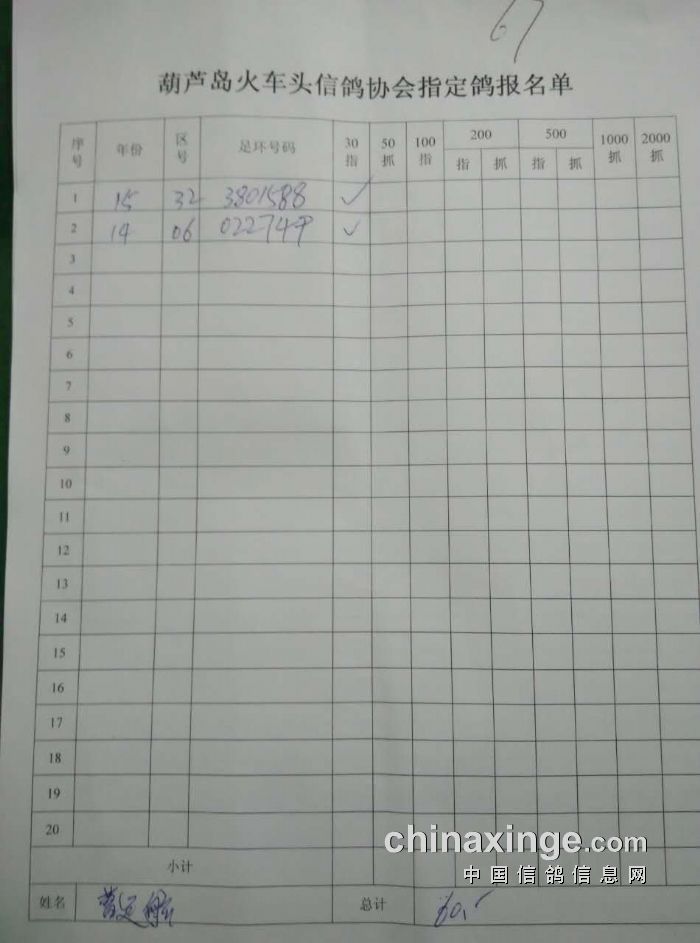 67
葫芦岛火车头信鸽协会指定鸽报名单
序号 年份 区号 足环号码 30指 50抓 100指 200 500 1000抓 2000抓
指 抓 指 抓
1 15 32 3801588 ✓
2 14 06 ✓
3
4
5
6
7
8
9
10
11
12
13
14
15
16
17
18
19
20
小计
姓名 总计
chinaxinge.com
中国信鸽信息网